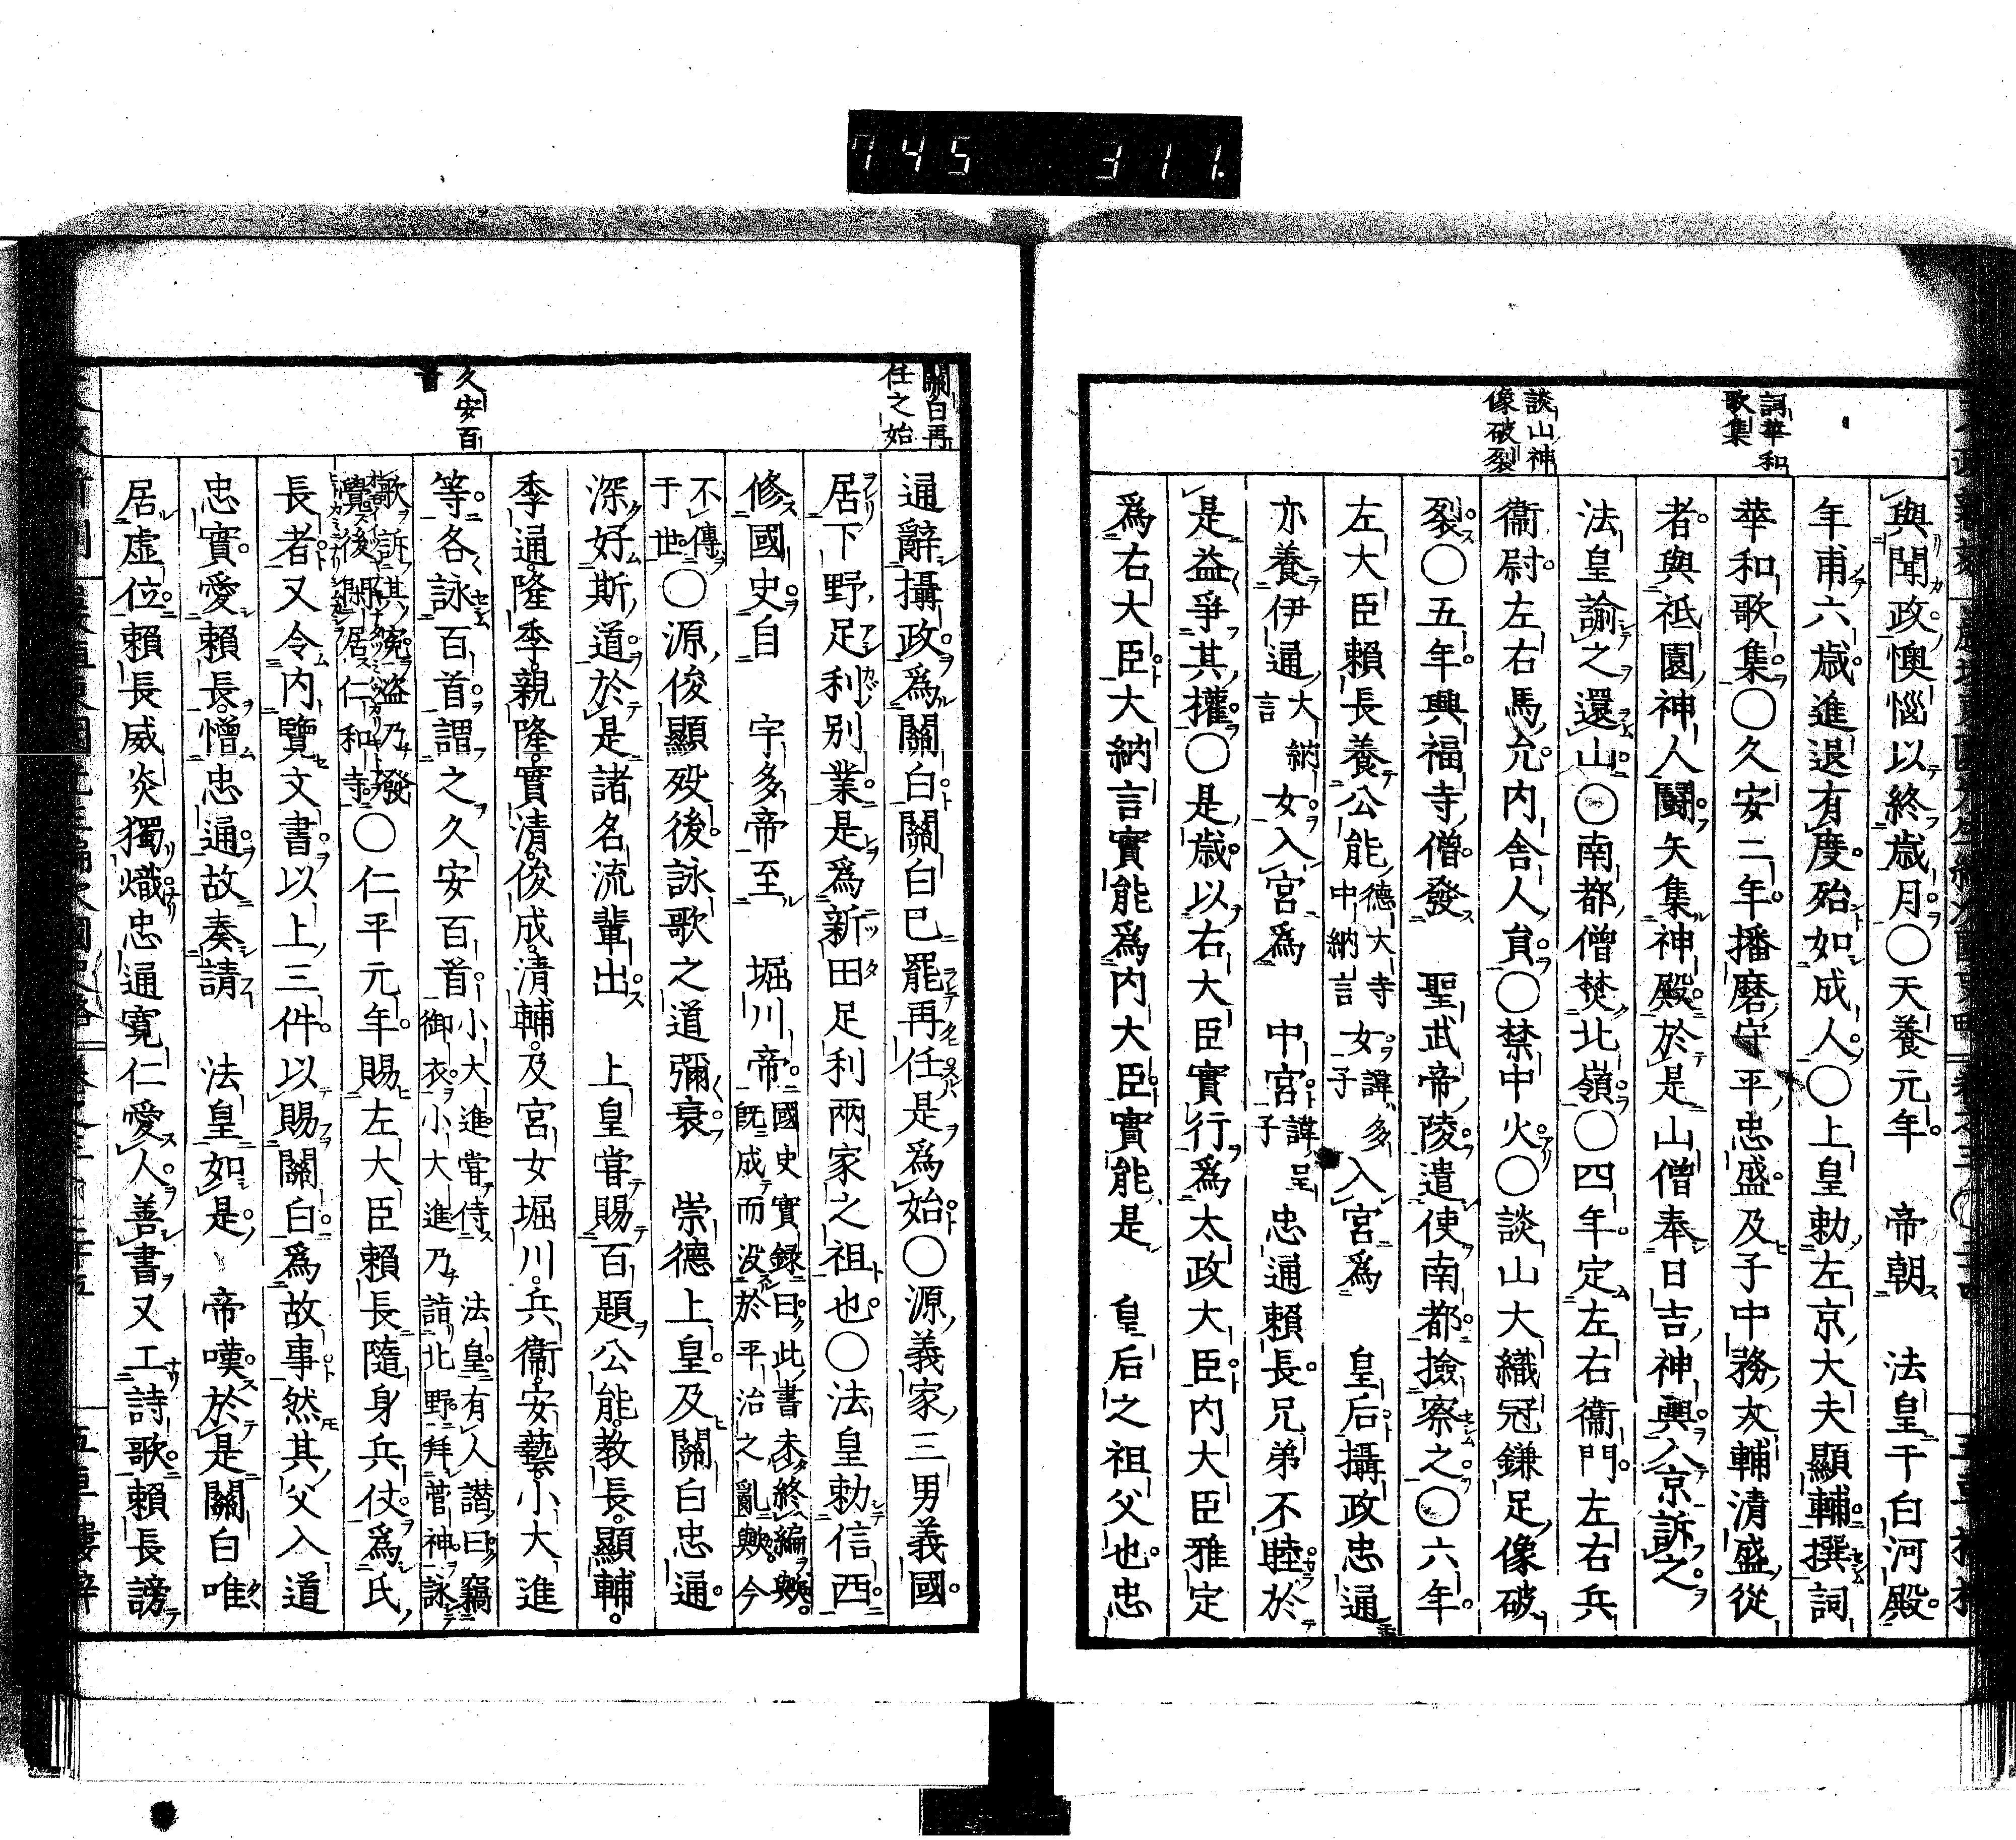 745 311.
詞華和
歌集
談山神
像破裂
與聞政懊惱以終歲月○天養元年 帝朝 法皇于白河殿
年甫六歲進退有度殆如成人○上皇勅左京大夫顯輔撰詞
華和歌集○久安二年播磨守平忠盛及子中務大輔清盛從
者與祇園神人鬪矢集神殿於是山僧奉日吉神輿入京訴之
法皇諭之還山○南都僧焚北嶺○四年定左右衞門左右兵
衞尉左右馬允内舍人員○禁中火○談山大織冠鎌足像破
裂○五年興福寺僧發 聖武帝陵遣使南都撿察之○六年
左大臣賴長養公能德大寺中納言女諱多子入宮爲 皇后攝政忠通
亦養伊通大納言女入宮爲 中宮諱呈子忠通賴長兄弟不睦於
是益爭其權○是歲以右大臣實行爲太政大臣内大臣雅定
爲右大臣大納言實能爲内大臣實能是 皇后之祖父也忠
關白再
任之始
久安百
首
通辭攝政爲關白關白已罷再任是爲始○源義家三男義國
居下野足利別業是爲新田足利兩家之祖也○法皇勅信西
修國史自 宇多帝至 堀川帝國史實録曰此書未終編歟既成而没於平治之亂歟今
不傳于世○源俊顯歿後詠歌之道彌衰 崇德上皇及關白忠通
深好斯道於是諸名流輩出 上皇嘗賜百題公能教長顯輔
季通隆季親隆實清俊成清輔及宮女堀川兵衞安藝小大進
等各詠百首謂之久安百首小大進嘗侍 法皇有人譖曰竊御衣小大進乃詣北野拜菅神詠
歌訴其寃盜乃發覺後閑居仁和寺○仁平元年賜左大臣賴長隨身兵仗爲氏
長者又令内覽文書以上三件以賜關白爲故事然其父入道
忠實愛賴長憎忠通故奏請 法皇如是 帝嘆於是關白唯
居虛位賴長威炎獨熾忠通寛仁愛人善書又工詩歌賴長謗